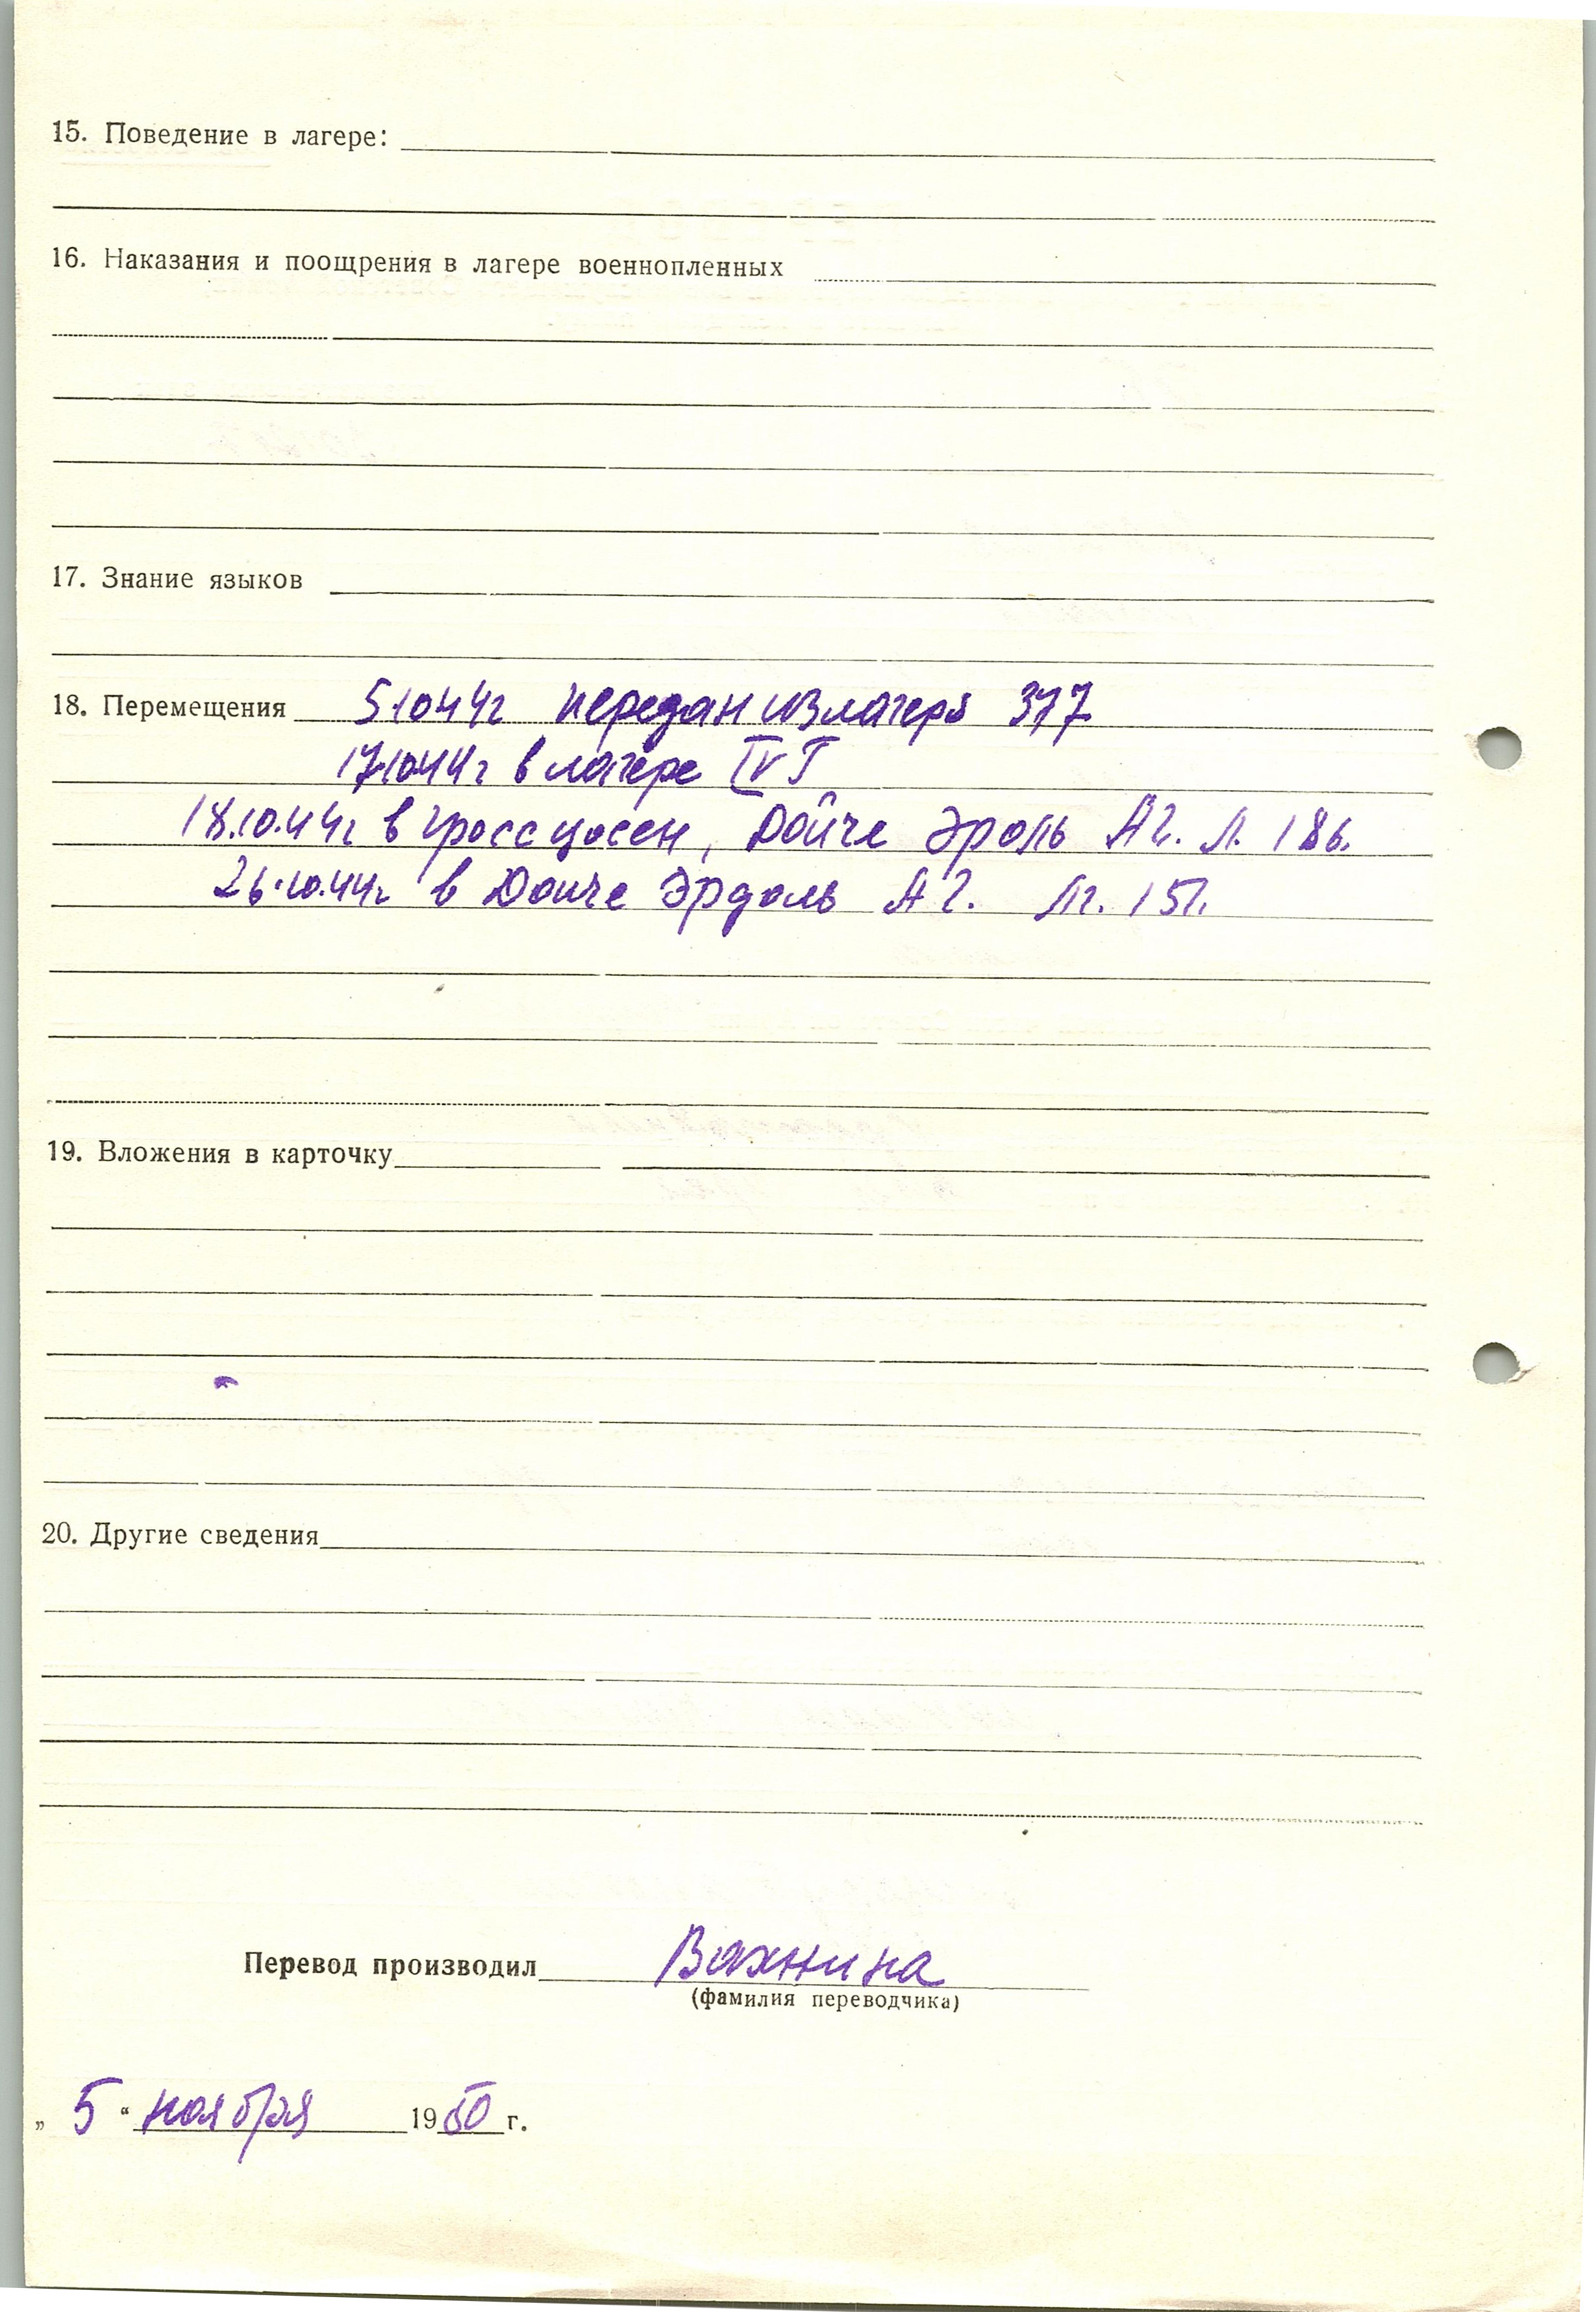 15. Поведение в лагере:
16. Наказания и поощрения в лагере военнопленных
17. Знание языков
18. Перемещения 5.10.44г передан из лагеря 317
17.10.44г в лагере IV Г
18.10.44г в Гроссцосен, Дойче Эроль АГ. Л. 186.
26.10.44г в Дойче Эрдоль АГ. Лг. 151.
19. Вложения в карточку
20. Другие сведения
Перевод производил Вахнина
(фамилия переводчика)
„ 5 “ ноября 1950 г.